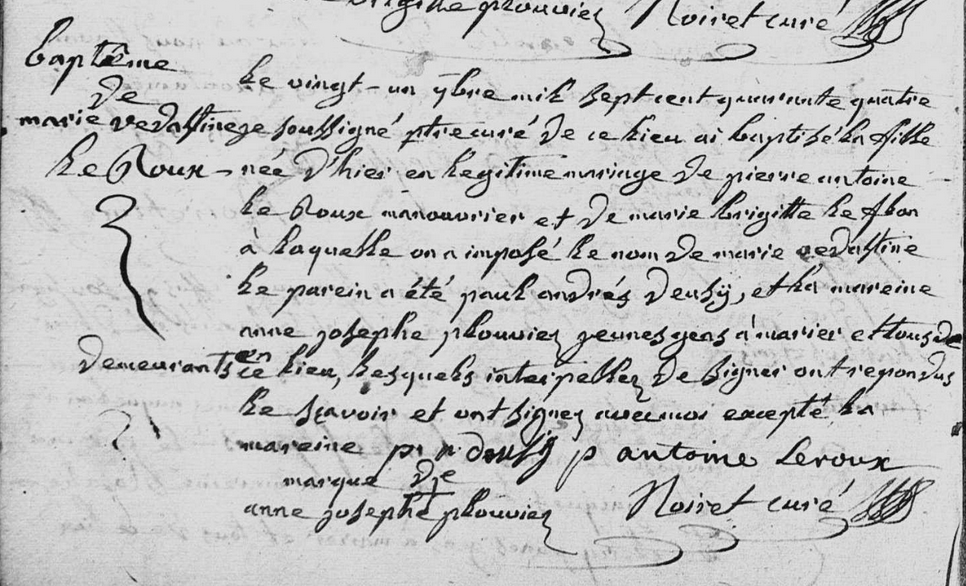 brigitte plouviez Noiret curé
baptême
de
marie vedastine
le Roux
le vingt-un 9bre mil sept cent quarante quatre
je soussigné ptre curé de ce lieu ai baptisé la fille
née d'hier en legitime mariage de pierre antoine
le Roux manouvrier et de marie brigitte le
à laquelle on a imposé le nom de marie vedastine
le parein a été paul andrés deusÿ, et la mareine
anne josephe plouviez jeunes gens à marier et tous de
demeurants en ce lieu, lesquels interpellez de signer ont repondus
le sçavoir et ont signez avec moi excepté la
mareine p a deusÿ p antoine Leroux
marque de
anne josephe plouviez Noiret curé